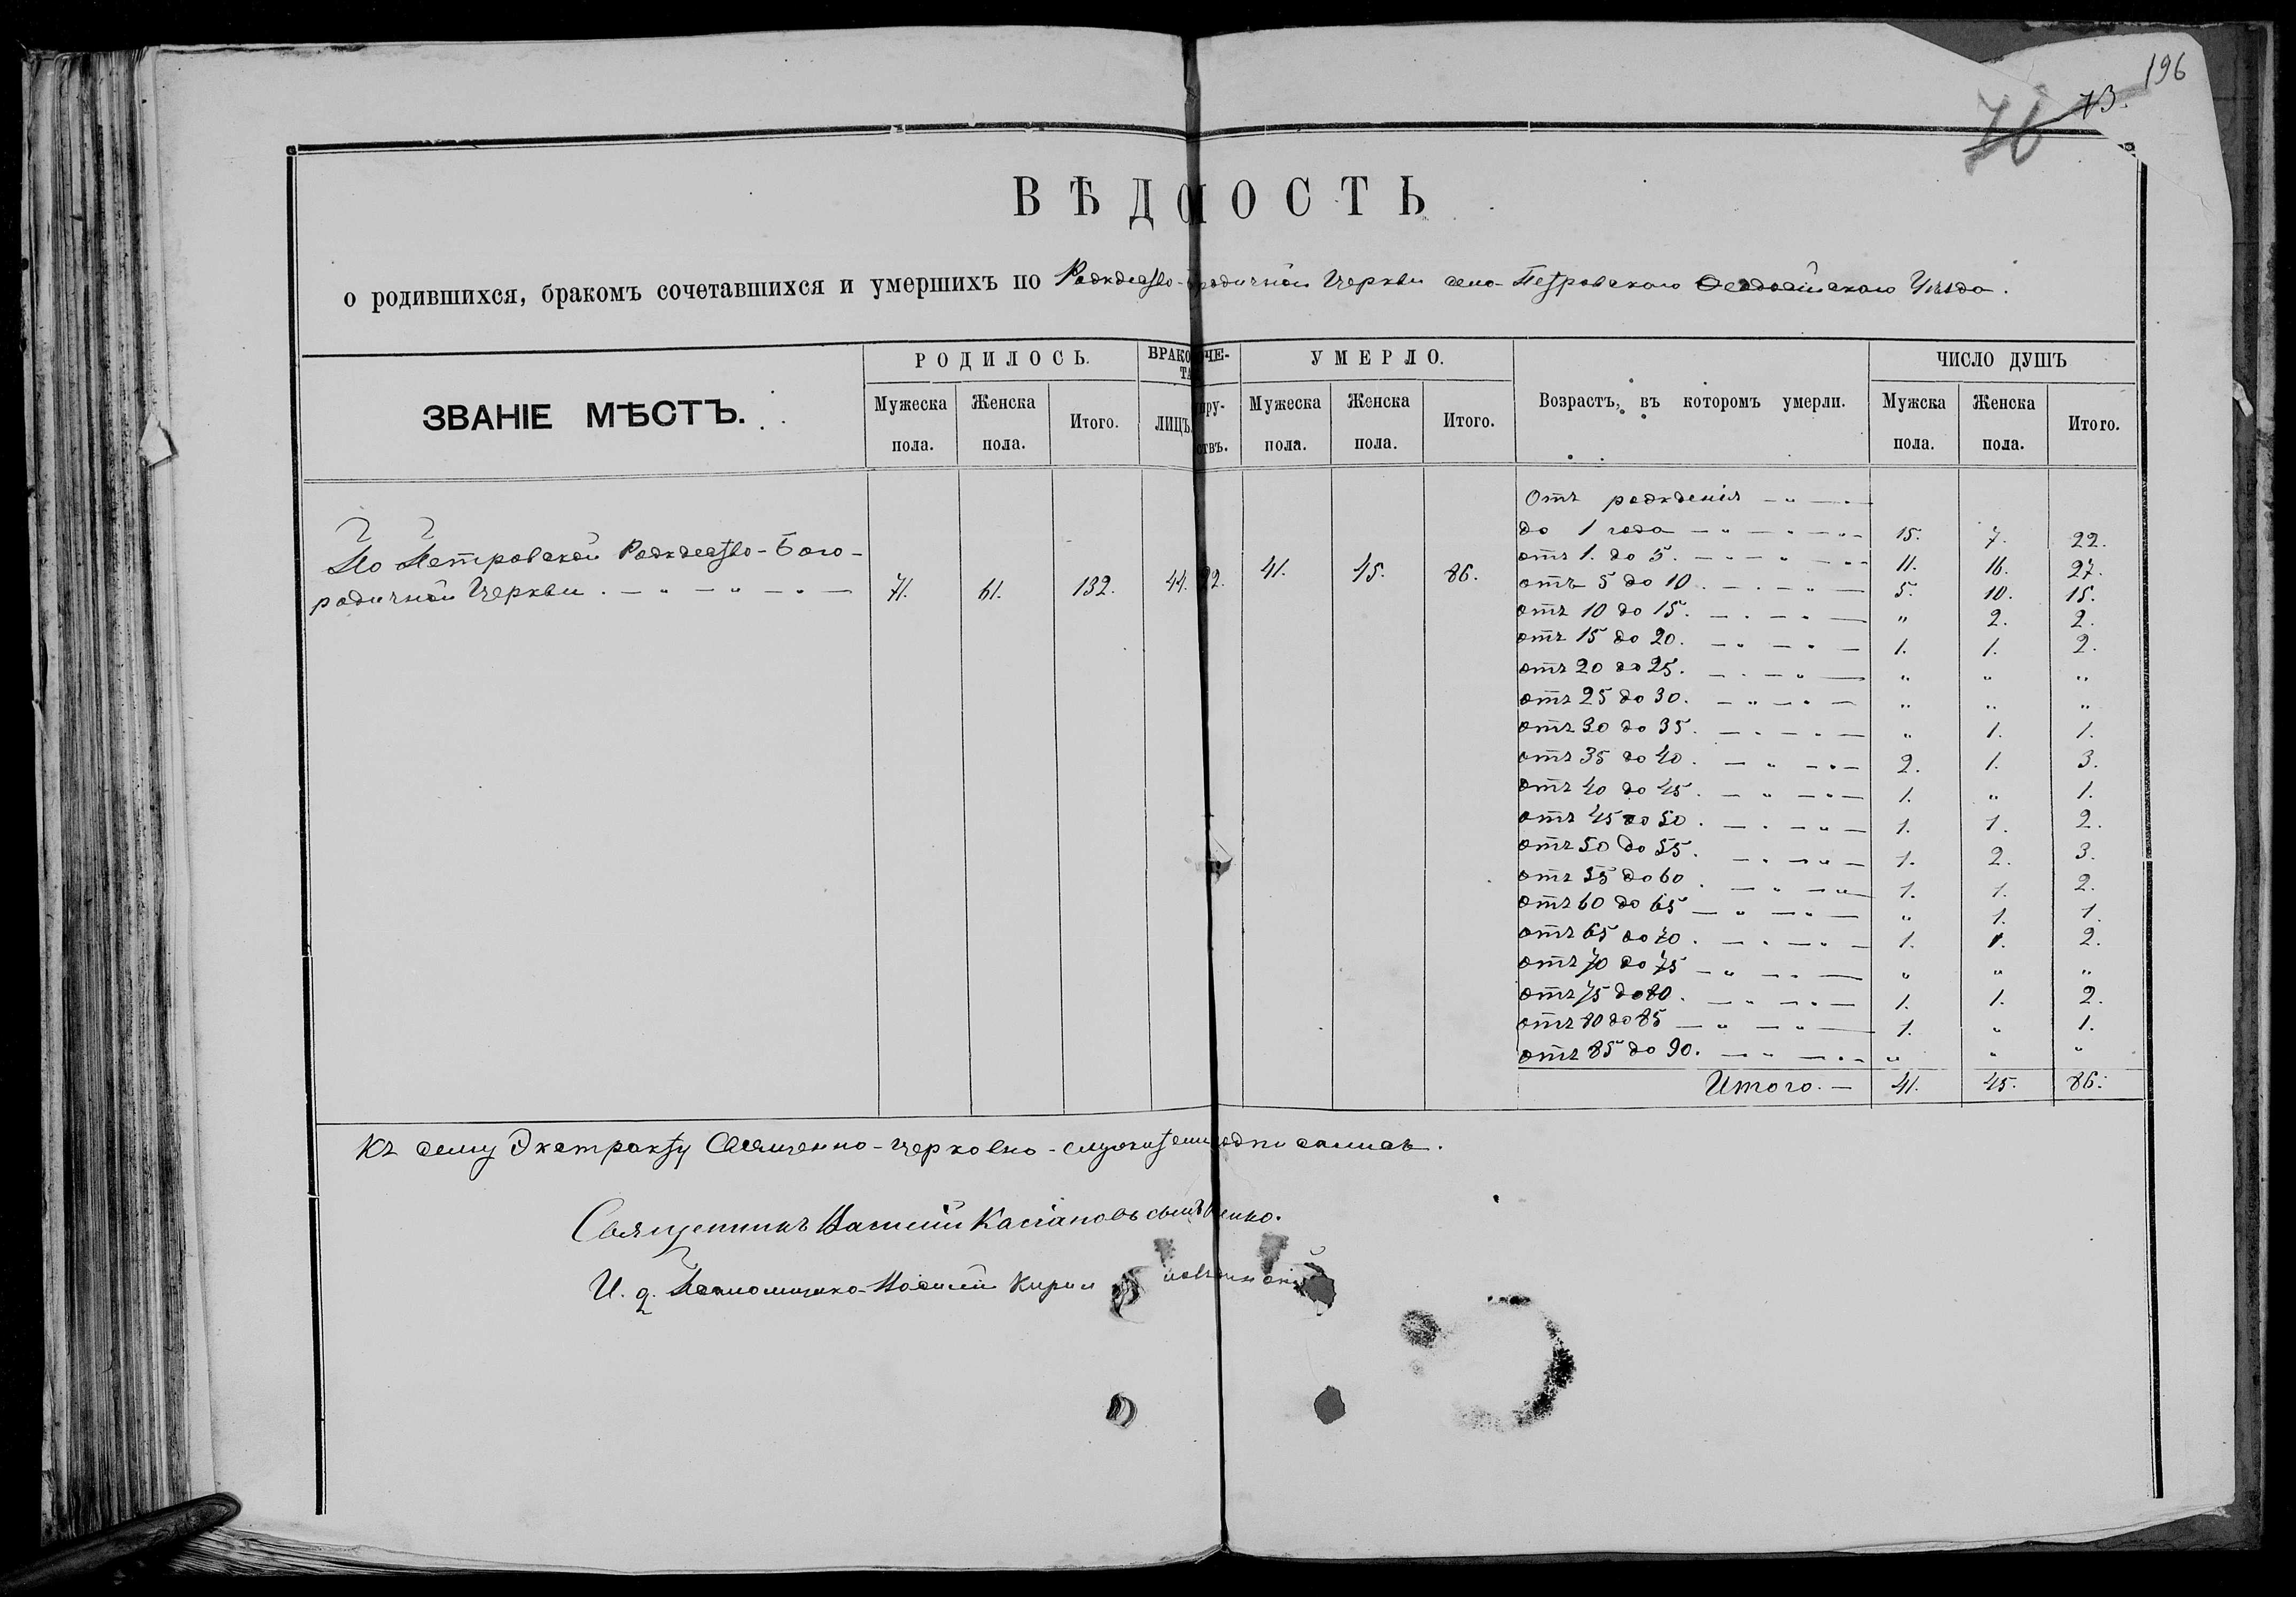 196
73.
76
ВѢДОМОСТЬ
о родившихся, бракомъ сочетавшихся и умершихъ по Рождество-Богородичной Церкви села Петровскаго Ѳеодосійскаго Уѣзда.
ЗВАНІЕ МѢСТЪ. РОДИЛОСЬ. БРАКОСОЧЕТА УМЕРЛО. Возрастъ, въ которомъ умерли. ЧИСЛО ДУШЪ
Мужеска пола. Женска пола. Итого. ЛИЦЪ. Мужеска пола. Женска пола. Итого. Мужска пола. Женска пола. Итого.
По Петровской Рождество-Бого-
родичной Церкви. 71. 61. 132. 44. 22. 41. 45. 86.
Отъ рожденія
до 1 года 15. 7. 22.
отъ 1. до 5. 11. 16. 27.
отъ 5 до 10. 5. 10. 15.
отъ 10 до 15. " 2. 2.
отъ 15 до 20. 1. 1. 2.
отъ 20 до 25. " " "
отъ 25 до 30. " " "
отъ 30 до 35. " 1. 1.
отъ 35 до 40. 2. 1. 3.
отъ 40 до 45. 1. " 1.
отъ 45 до 50. 1. 1. 2.
отъ 50 до 55. 1. 2. 3.
отъ 55 до 60. 1. 1. 2.
отъ 60 до 65 " 1. 1.
отъ 65 до 70. 1. 1. 2.
отъ 70 до 75 " " "
отъ 75 до 80. 1. 1. 2.
отъ 80 до 85 1. " 1.
отъ 85 до 90. " " "
Итого. 41. 45. 86.
Къ сему Экстракту Священно-церковно-служители подписались.
Священникъ Василій Касіановъ
И. д. Псаломщика Василій